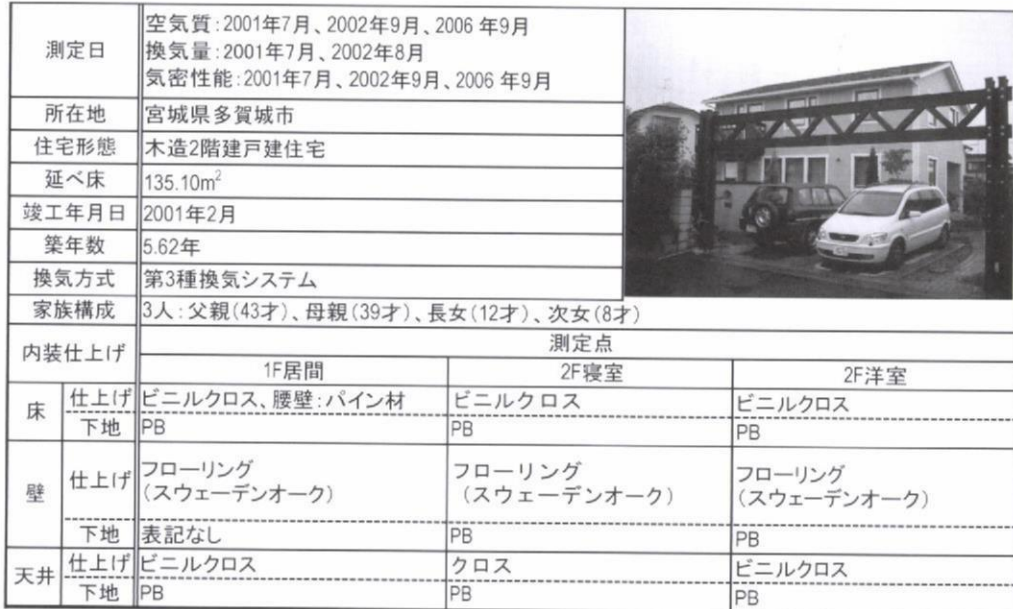 測定日
空気質:2001年7月、2002年9月、2006 年9月
換気量:2001年7月、2002年8月
気密性能:2001年7月、2002年9月、2006 年9月
所在地 宮城県多賀城市
住宅形態 木造2階建戸建住宅
延べ床 135.10m²
竣工年月日 2001年2月
築年数 5.62年
換気方式 第3種換気システム
家族構成 3人:父親(43才)、母親(39才)、長女(12才)、次女(8才)
内装仕上げ 測定点
1F居間 2F寝室 2F洋室
床 仕上げ ビニルクロス、腰壁:パイン材 ビニルクロス ビニルクロス
下地 PB PB PB
壁 仕上げ フローリング (スウェーデンオーク) フローリング (スウェーデンオーク) フローリング (スウェーデンオーク)
下地 表記なし PB PB
天井 仕上げ ビニルクロス クロス ビニルクロス
下地 PB PB PB